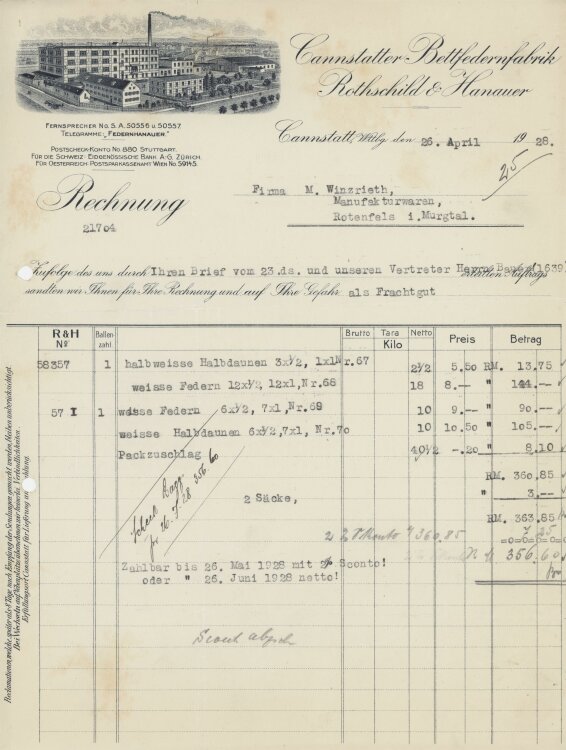 Cannstatter Bettfedernfabrik
Rothschild & Hanauer
FERNSPRECHER NO. S.A. 50556 u. 50557
TELEGRAMME: „FEDERNHANAUER."
POSTSCHECK-KONTO No. 880 STUTTGART.
FÜR DIE SCHWEIZ: EIDGENÖSSISCHE BANK A.-G. ZÜRICH.
FÜR OESTERREICH: POSTSPARKASSENAMT WIEN No. 59145.
Cannstatt, Wttbg. den 26. April 1928.
25
Rechnung
21704
Firma M. Winzrieth,
Manufakturwaren,
Rotenfels i.Murgtal.
Zufolge des uns durch Ihren Brief vom 23.ds. und unseren Vertreter Herrn Bauer (1639) erteilten Auftrags
sandten wir Ihnen für Ihre Rechnung und auf Ihre Gefahr als Frachtgut
R&H No. Ballenzahl Brutto Tara Netto Kilo Preis Betrag
58357 1 halbweisse Halbdaunen 3x½, 1x1 Nr.67 2½ 5.50 RM. 13.75
weisse Federn 12x½, 12x1,Nr.68 18 8.-- " 144.--
57 I 1 weisse Federn 6x½, 7x1,Nr.69 10 9.-- " 90.--
weisse Halbdaunen 6x½,7x1, Nr.70 10 10.50 " 105.--
Packzuschlag 40½ -.20 " 8.10
RM. 360.85
2 Säcke, " 3.--
RM. 363.85
2% Skonto 360,85 7 25
356.60
26.5.28 356.60
Zahlbar bis 26. Mai 1928 mit 2% Sconto!
oder " 26. Juni 1928 netto!
Reclamationen, welche später als 8 Tage nach Empfang der Sendungen gemacht werden, bleiben unberücksichtigt.
Bei Wechseln auf Nebenplätze übernehmen wir keinerlei Verbindlichkeiten.
Erfüllungsort Cannstatt für Lieferung und Zahlung.